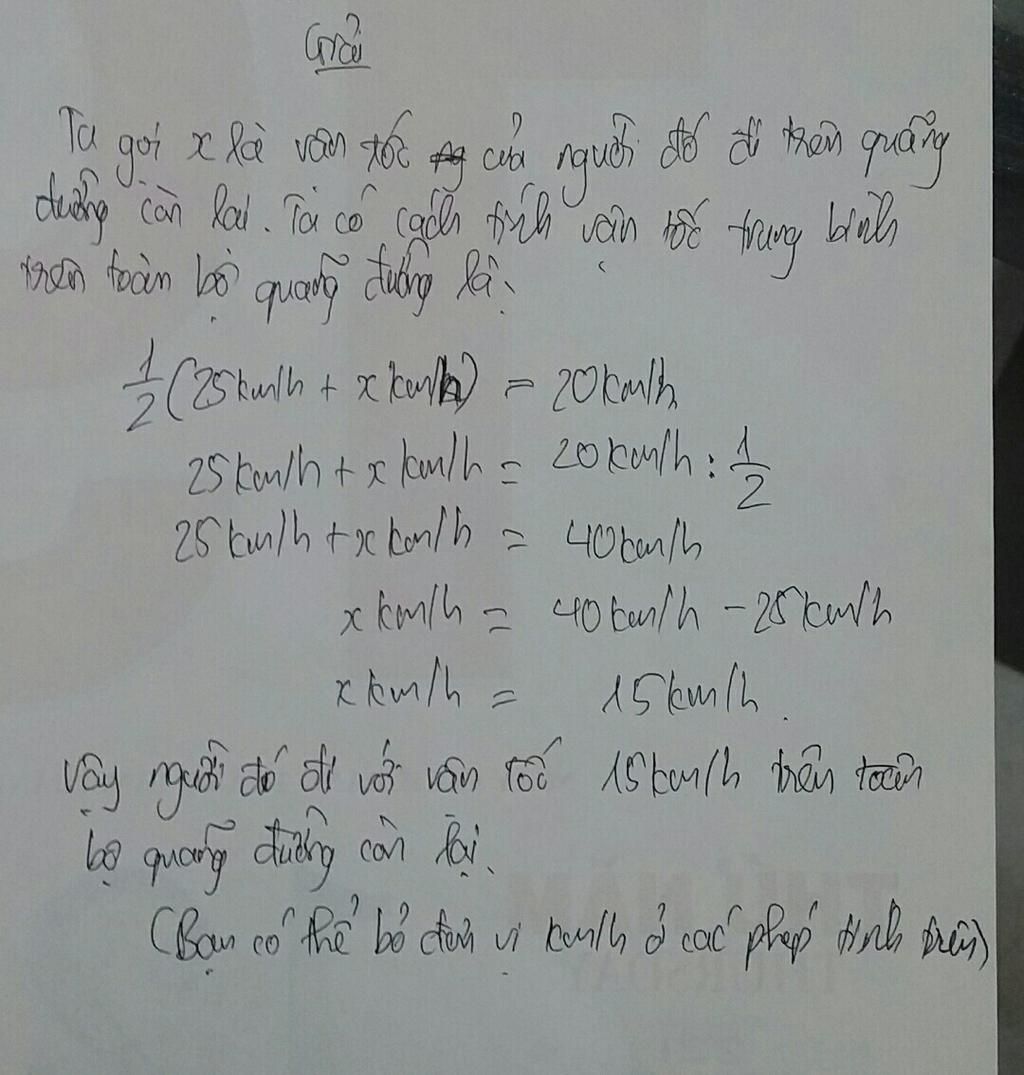 Giải
Ta gọi x là vận tốc của người đó đi trên quãng
đường còn lại. Ta có cách tính vận tốc trung bình
trên toàn bộ quãng đường là:
1/2 (25km/h + x km/h) = 20km/h
25km/h + x km/h = 20km/h : 1/2
25km/h + x km/h = 40km/h
x km/h = 40km/h - 25km/h
x km/h = 15km/h.
Vậy người đó đi với vận tốc 15km/h trên toàn
bộ quãng đường còn lại.
(Bạn có thể bỏ đơn vị km/h ở các phép tính trên)
THỨ NĂM
THURSDAY